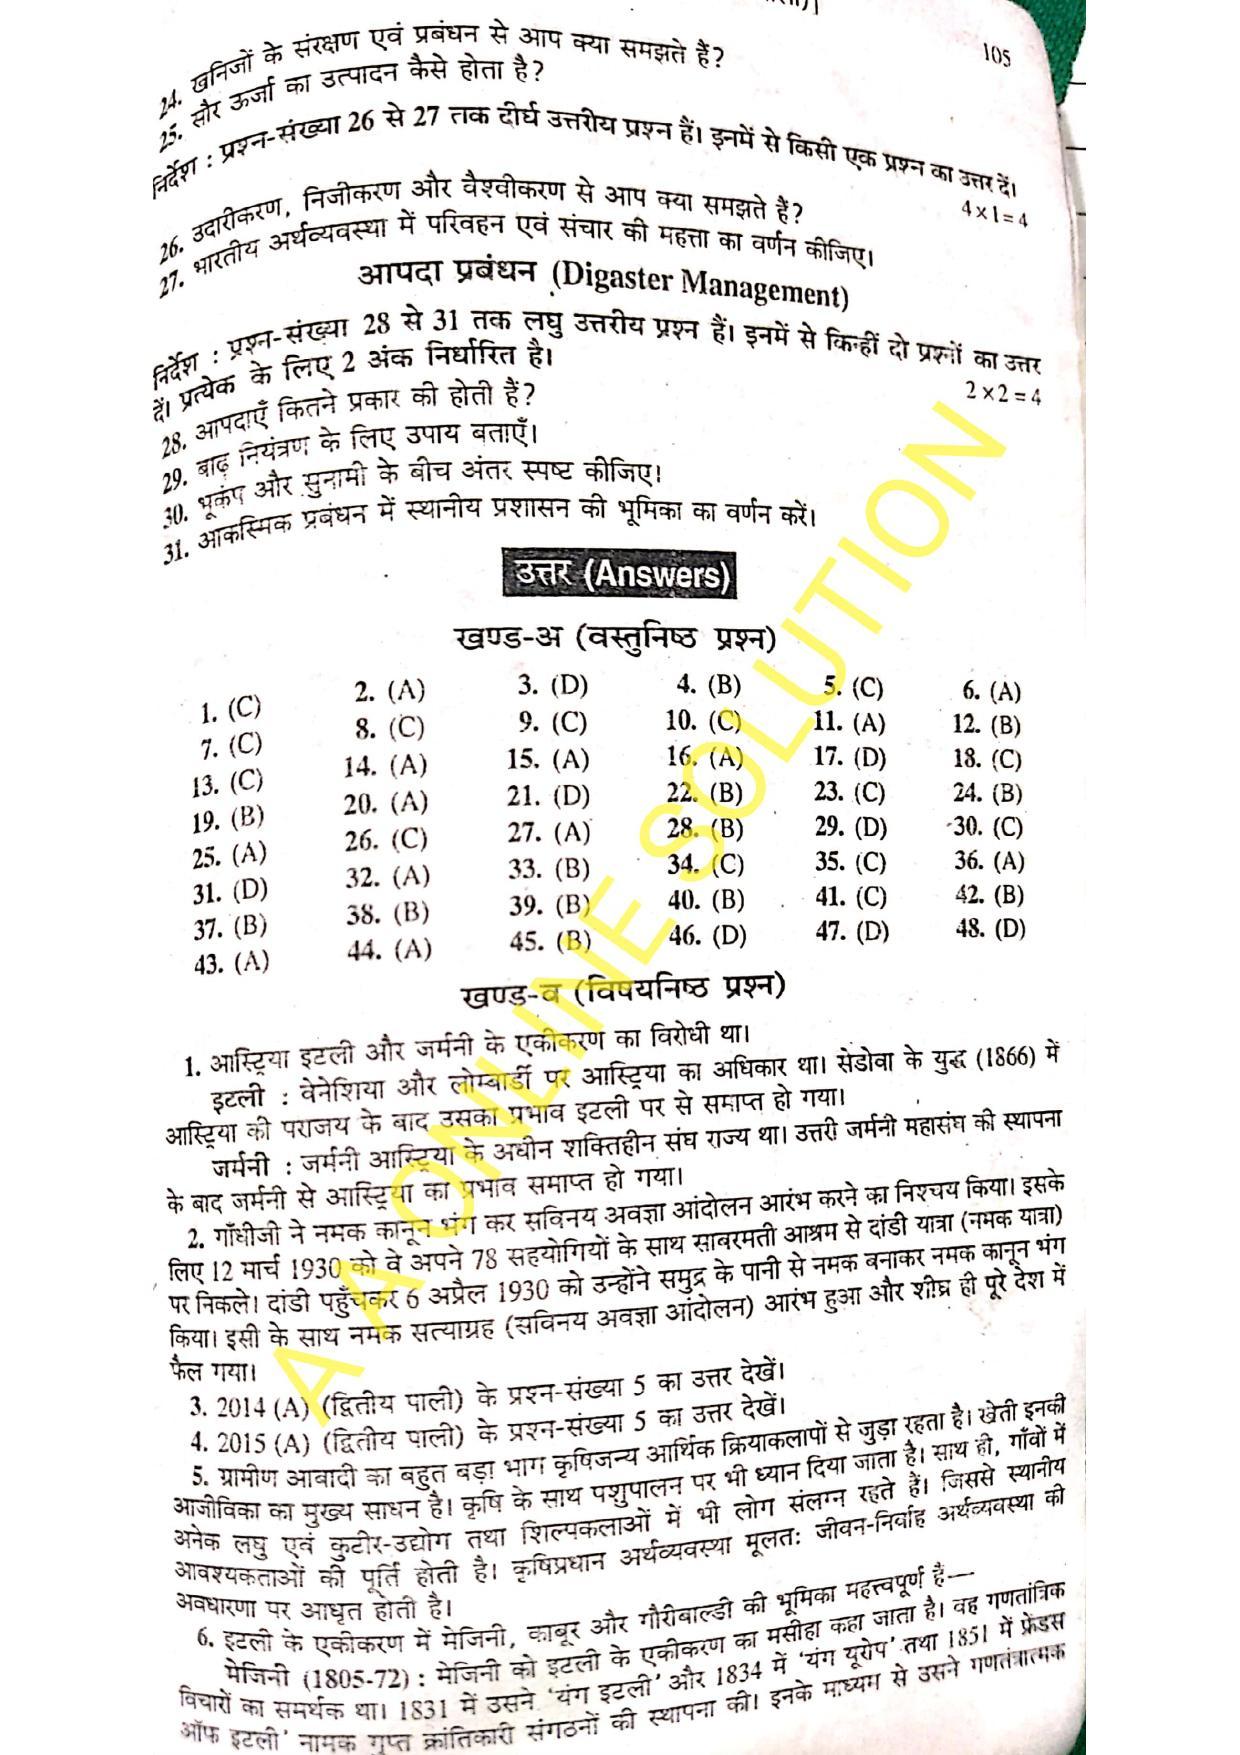 105
24. खनिजों के संरक्षण एवं प्रबंधन से आप क्या समझते हैं?
25. सौर ऊर्जा का उत्पादन कैसे होता है?
निर्देश : प्रश्न-संख्या 26 से 27 तक दीर्घ उत्तरीय प्रश्न हैं। इनमें से किसी एक प्रश्न का उत्तर दें।
4×1=4
26. उदारीकरण, निजीकरण और वैश्वीकरण से आप क्या समझते हैं?
27. भारतीय अर्थव्यवस्था में परिवहन एवं संचार की महत्ता का वर्णन कीजिए।
आपदा प्रबंधन (Digaster Management)
निर्देश : प्रश्न-संख्या 28 से 31 तक लघु उत्तरीय प्रश्न हैं। इनमें से किन्हीं दो प्रश्नों का उत्तर
दें। प्रत्येक के लिए 2 अंक निर्धारित है।
2×2=4
28. आपदाएँ कितने प्रकार की होती हैं?
29. बाढ़ नियंत्रण के लिए उपाय बताएँ।
30. भूकंप और सुनामी के बीच अंतर स्पष्ट कीजिए।
31. आकस्मिक प्रबंधन में स्थानीय प्रशासन की भूमिका का वर्णन करें।
उत्तर (Answers)
खण्ड-अ (वस्तुनिष्ठ प्रश्न)
1. (C) 2. (A) 3. (D) 4. (B) 5. (C) 6. (A)
7. (C) 8. (C) 9. (C) 10. (C) 11. (A) 12. (B)
13. (C) 14. (A) 15. (A) 16. (A) 17. (D) 18. (C)
19. (B) 20. (A) 21. (D) 22. (B) 23. (C) 24. (B)
25. (A) 26. (C) 27. (A) 28. (B) 29. (D) 30. (C)
31. (D) 32. (A) 33. (B) 34. (C) 35. (C) 36. (A)
37. (B) 38. (B) 39. (B) 40. (B) 41. (C) 42. (B)
43. (A) 44. (A) 45. (B) 46. (D) 47. (D) 48. (D)
खण्ड-व (विषयनिष्ठ प्रश्न)
1. आस्ट्रिया इटली और जर्मनी के एकीकरण का विरोधी था।
इटली : वेनेशिया और लोम्बार्डी पर आस्ट्रिया का अधिकार था। सेडोवा के युद्ध (1866) में
आस्ट्रिया की पराजय के बाद उसका प्रभाव इटली पर से समाप्त हो गया।
जर्मनी : जर्मनी आस्ट्रिया के अधीन शक्तिहीन संघ राज्य था। उत्तरी जर्मनी महासंघ की स्थापना
के बाद जर्मनी से आस्ट्रिया का प्रभाव समाप्त हो गया।
2. गाँधीजी ने नमक कानून भंग कर सविनय अवज्ञा आंदोलन आरंभ करने का निश्चय किया। इसके
लिए 12 मार्च 1930 को वे अपने 78 सहयोगियों के साथ साबरमती आश्रम से दांडी यात्रा (नमक यात्रा)
पर निकले। दांडी पहुँचकर 6 अप्रैल 1930 को उन्होंने समुद्र के पानी से नमक बनाकर नमक कानून भंग
किया। इसी के साथ नमक सत्याग्रह (सविनय अवज्ञा आंदोलन) आरंभ हुआ और शीघ्र ही पूरे देश में
फैल गया।
3. 2014 (A) (द्वितीय पाली) के प्रश्न-संख्या 5 का उत्तर देखें।
4. 2015 (A) (द्वितीय पाली) के प्रश्न-संख्या 5 का उत्तर देखें।
5. ग्रामीण आबादी का बहुत बड़ा भाग कृषिजन्य आर्थिक क्रियाकलापों से जुड़ा रहता है। खेती इनकी
आजीविका का मुख्य साधन है। कृषि के साथ पशुपालन पर भी ध्यान दिया जाता है। साथ ही, गाँवों में
अनेक लघु एवं कुटीर-उद्योग तथा शिल्पकलाओं में भी लोग संलग्न रहते हैं। जिससे स्थानीय
आवश्यकताओं की पूर्ति होती है। कृषिप्रधान अर्थव्यवस्था मूलतः जीवन-निर्वाह अर्थव्यवस्था की
अवधारणा पर आधृत होती है।
6. इटली के एकीकरण में मेजिनी, काबूर और गौरीबाल्डी की भूमिका महत्त्वपूर्ण है—
मेजिनी (1805-72) : मेजिनी को इटली के एकीकरण का मसीहा कहा जाता है। वह गणतांत्रिक
विचारों का समर्थक था। 1831 में उसने 'यंग इटली' और 1834 में 'यंग यूरोप' तथा 1851 में फ्रेंडस
ऑफ इटली' नामक गुप्त क्रांतिकारी संगठनों की स्थापना की। इनके माध्यम से उसने गणतंत्रात्मक
A A ONLINE SOLUTION